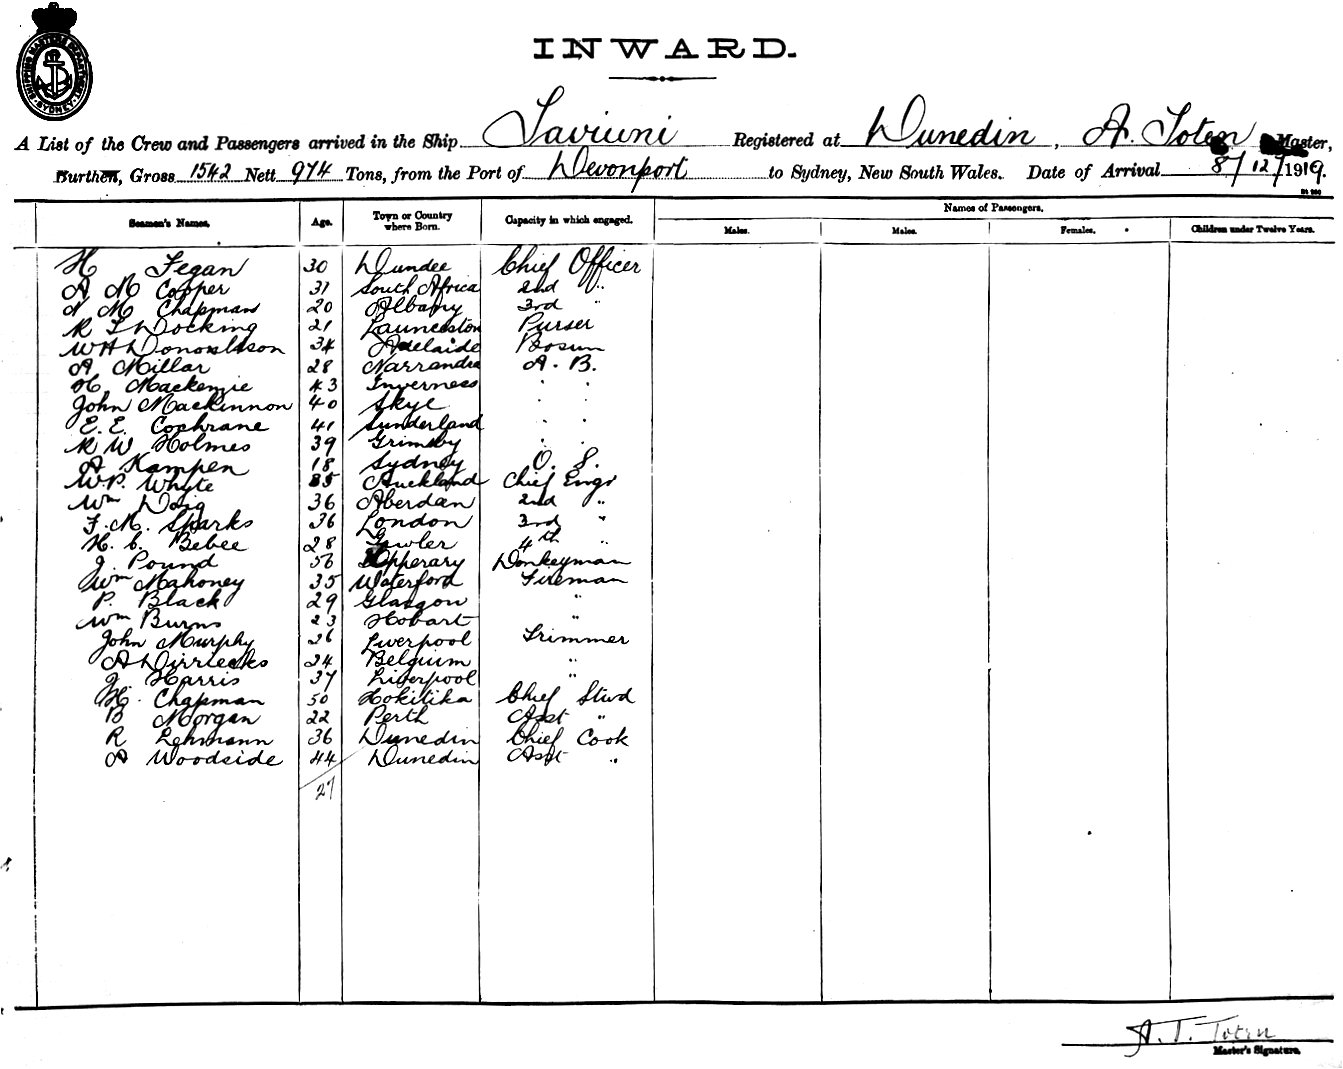 SHIPPING MASTERS DEPARTMENT SYDNEY
INWARD.
A List of the Crew and Passengers arrived in the Ship Taviuni Registered at Dunedin, A. Toten Master,
Burthen, Gross 1542 Nett 974 Tons, from the Port of Devonport to Sydney, New South Wales. Date of Arrival 8/12/1919.
Seamen's Names. Age. Town or Country where Born. Capacity in which engaged. Names of Passengers.
Males. Males. Females. Children under Twelve Years.
H Fegan 30 Dundee Chief Officer
A M Cooper 31 South Africa 2nd "
N M Chapman 20 Albany 3rd "
R L Docking 21 Launceston Purser
W H 34 Adelaide Bosun
A Millar 28 Narrandra A. B.
H. Mackenzie 43 Inverness " "
John Mackinnon 40 Skye " "
E. E. Cochrane 41 Sunderland " "
R W Holmes 39 Grimsby " "
A Kampen 18 Sydney O. S.
W P. Whyte 35 Auckland Chief Engr
Wm Doig 36 Aberdan 2nd "
F. M. Sparks 36 London 3rd "
H. C. Bebee 28 Gawler 4th "
J. Pound 56 Tipperary Donkeyman
Wm Mahoney 35 Waterford Fireman
P. Black 29 Glasgow "
Wm Burns 23 Hobart "
John Murphy 26 Liverpool Trimmer
A Dirriecks 24 Belgium "
J. Harris 37 Liverpool "
H. Chapman 50 Hokitika Chief Stwd
B Morgan 22 Perth Asst "
R Lehmann 36 Dunedin Chief Cook
A Woodside 44 Dunedin Asst "
27
A. T. Toten
Master's Signature.